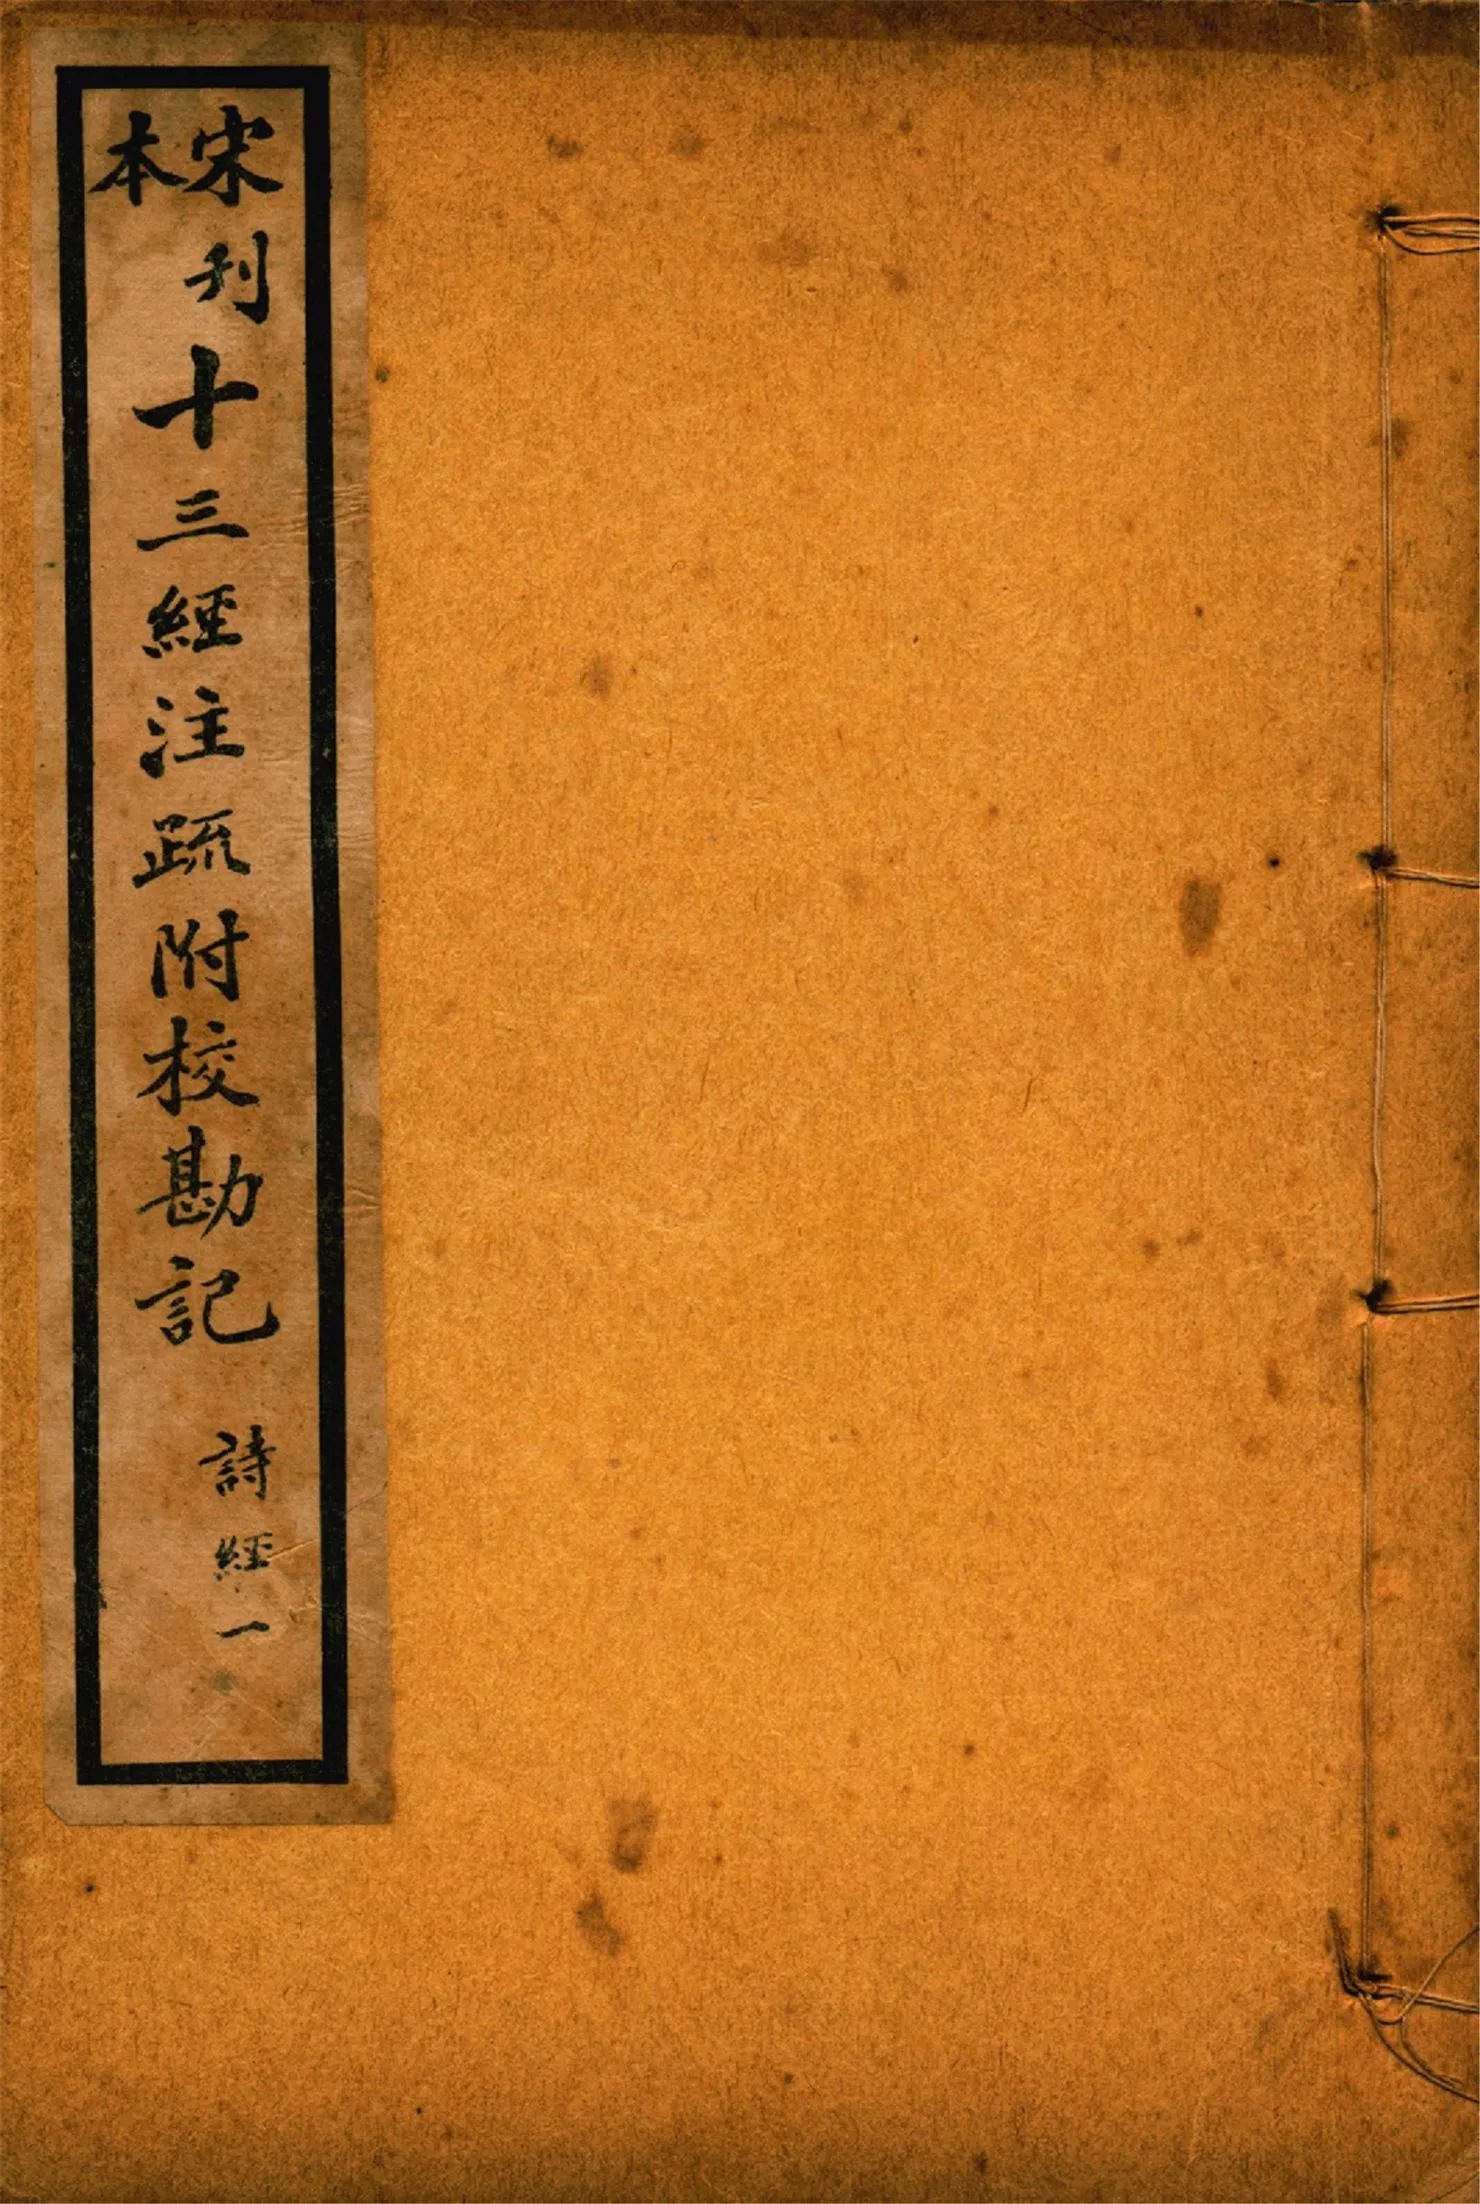 宋刊本十三經注疏附校勘記
詩經一